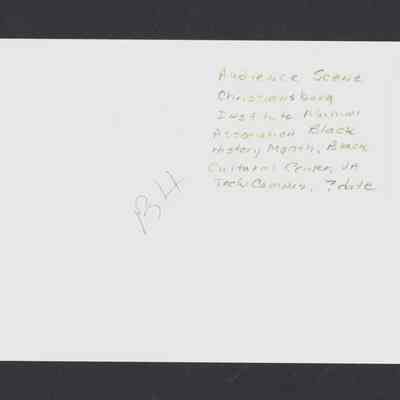 Audience Scene
Christiansburg
Institute Alumni
Association Black
History Month, Black
Cultural Center, VA
Tech Campus, ?date
B4